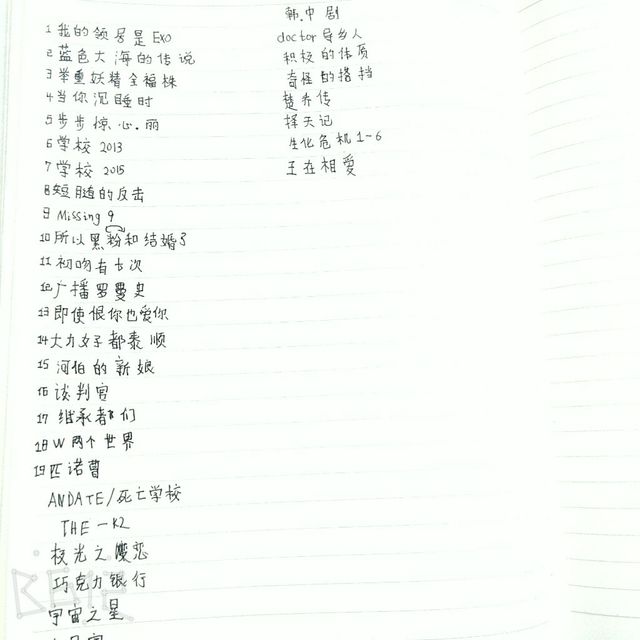 1 我的领居是Exo
2 蓝色大海的传说
3 举重妖精全福株
4 当你沉睡时
5 步步惊心.丽
6 学校 2013
7 学校 2015
8 短腿的反击
9 Missing 9
10 所以黑粉和结婚了
11 初吻有七次
12 广播罗曼史
13 即使恨你也爱你
14 大力女子都泰顺
15 河伯的新娘
16 谈判官
17 继承者们
18 W 两个世界
19 匹诺曹
ANDATE/死亡学校
THE 一K2
极光之恋
巧克力银行
宇宙之星
韩.中剧
doctor异乡人
积极的体质
奇怪的搭挡
楚乔传
择天记
生化危机1-6
王在相爱